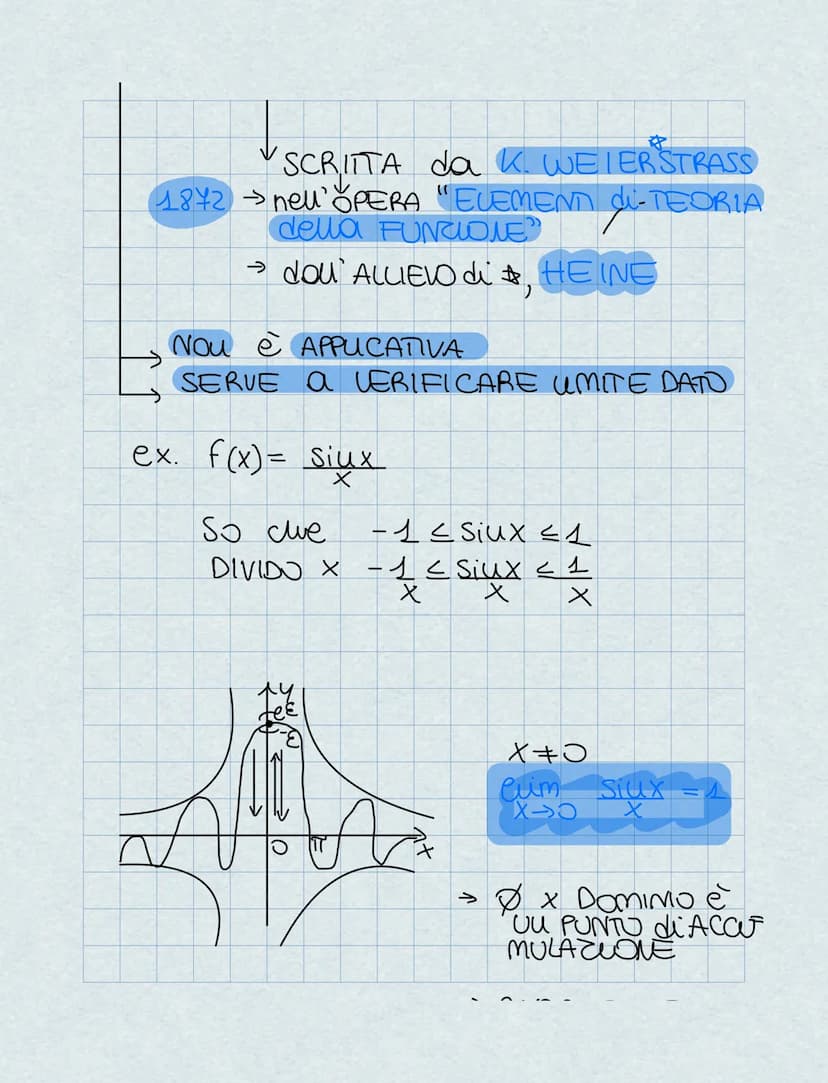 SCRITTA da K. WEIERSTRASS
1872 → nell'OPERA "ELEMENTI di TEORIA
della FUNZIONE"
→ dall'ALLIEVO di ☆, HEINE
NON è APPLICATIVA
SERVE a VERIFICARE LIMITE DATO
ex. f(x) = sinx/x
So che -1 ≤ sinx ≤ 1
DIVIDO x -1/x ≤ sinx/x ≤ 1/x
y
ε
-ε
0 π x
x≠0
lim x→0 sinx/x = 1
→ Ø x DOMINIO è
UN PUNTO di ACCU
MULAZIONE